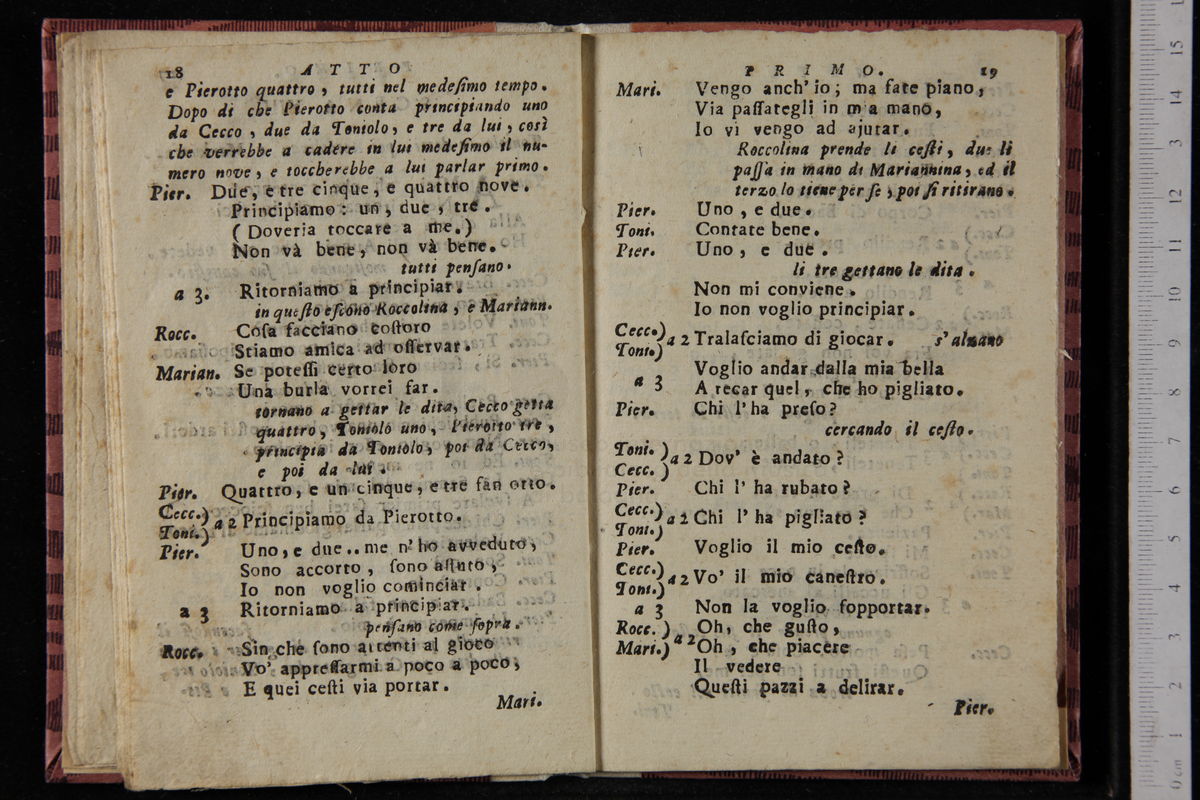 18 ATTO
e Pierotto quattro, tutti nel medeſimo tempo.
Dopo di che Pierotto conta principiando uno
da Cecco, due da Toniolo, e tre da lui, così
che verrebbe a cadere in lui medeſimo il nu-
mero nove, e toccherebbe a lui parlar primo.
Pier. Due, e tre cinque, e quattro nove.
Principiamo: un, due, tre.
(Doveria toccare a me.)
Non và bene, non và bene.
tutti penſano.
a 3. Ritorniamo a principiar.
in queſto eſcono Roccolina, e Mariann.
Rocc. Coſa facciano coſtoro
Stiamo amica ad oſſervar.
Marian. Se poteſſi certo loro
Una burla vorrei far.
tornano a gettar le dita, Cecco getta
quattro, Toniolo uno, Pierotto tre,
principia da Toniolo, poi da Cecco,
e poi da lui.
Pier. Quattro, e un cinque, e tre fan otto.
Cecc.)
Toni.) a 2 Principiamo da Pierotto.
Pier. Uno, e due.. me n'ho avveduto,
Sono accorto, ſono aſtuto,
Io non voglio cominciar.
a 3 Ritorniamo a principiar.
penſano come ſopra.
Rocc. Sin che ſono attenti al gioco
Vo' appreſſarmi a poco a poco,
E quei ceſti via portar.
Mari.
PRIMO. 19
Mari. Vengo anch' io; ma fate piano,
Via paſſategli in m a mano,
Io vi vengo ad ajutar.
Roccolina prende li ceſti, due li
paſſa in mano di Mariannina, ed il
terzo lo tiene per ſe, poi ſi ritirano.
Pier. Uno, e due.
Toni. Contate bene.
Pier. Uno, e due.
li tre gettano le dita.
Non mi conviene.
Io non voglio principiar.
Cecc.)
Toni.) a 2 Tralaſciamo di giocar. s'alzano
a 3 Voglio andar dalla mia bella
A recar quel, che ho pigliato.
Pier. Chi l'ha preſo?
cercando il ceſto.
Toni.)
Cecc.) a 2 Dov' è andato?
Pier. Chi l' ha rubato?
Cecc.)
Toni.) a 2 Chi l' ha pigliato?
Pier. Voglio il mio ceſto.
Cecc.)
Toni.) a 2 Vo' il mio caneſtro.
a 3 Non la voglio ſopportar.
Rocc.) Oh, che guſto,
Mari.) a 2 Oh, che piacere
Il vedere
Queſti pazzi a delirar.
Pier.